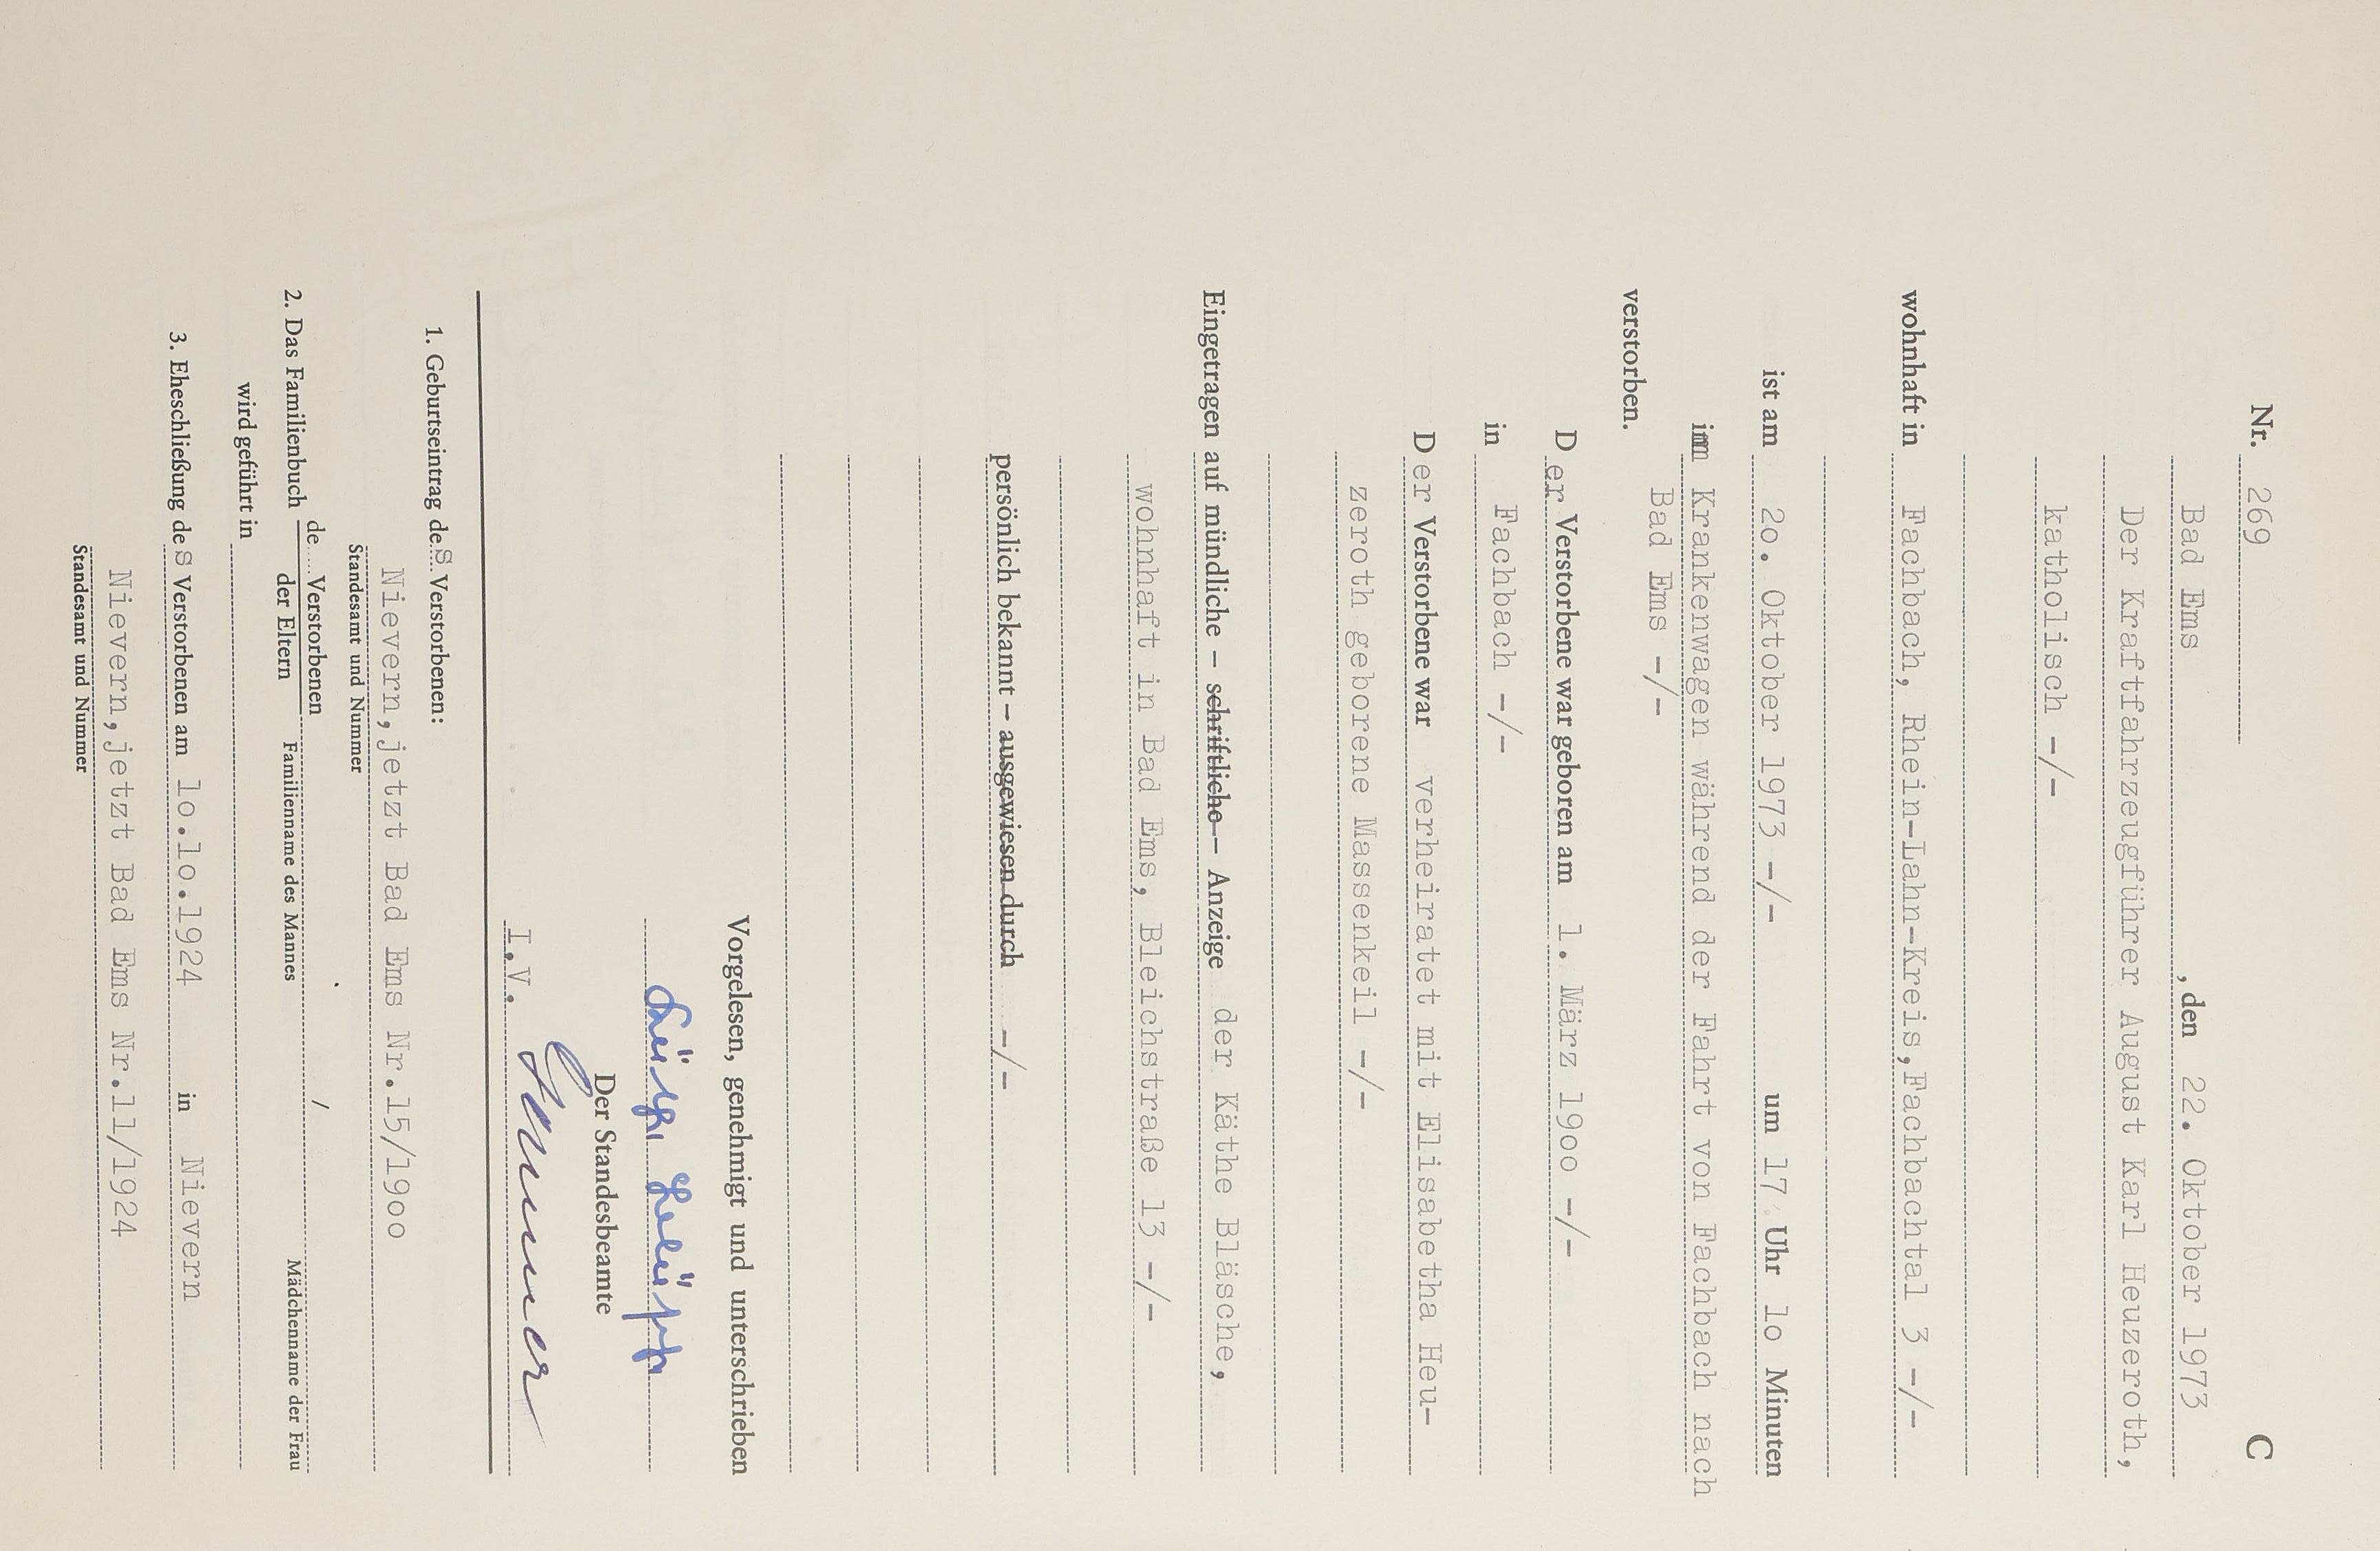 C
Nr. 269
Bad Ems, den 22. Oktober 1973
Der Kraftfahrzeugführer August Karl Heuzeroth,
katholisch -/-
wohnhaft in Fachbach, Rhein-Lahn-Kreis,Fachbachtal 3 -/-
ist am 2o. Oktober 1973 -/- um 17 Uhr 1o Minuten
im Krankenwagen während der Fahrt von Fachbach nach
Bad Ems -/-
verstorben.
Der Verstorbene war geboren am 1. März 19oo -/-
in Fachbach -/-
Der Verstorbene war verheiratet mit Elisabetha Heu-
zeroth geborene Massenkeil -/-
Eingetragen auf mündliche – schriftliche – Anzeige der Käthe Bläsche,
wohnhaft in Bad Ems, Bleichstraße 13 -/-
persönlich bekannt – ausgewiesen durch -/-
Vorgelesen, genehmigt und unterschrieben
Der Standesbeamte
I.V.
1. Geburtseintrag des Verstorbenen:
Nievern,jetzt Bad Ems Nr.15/19oo
Standesamt und Nummer
2. Das Familienbuch de... Verstorbenen /
der Eltern Familienname des Mannes Mädchenname der Frau
wird geführt in
3. Eheschließung des Verstorbenen am 1o.1o.1924 in Nievern
Nievern,jetzt Bad Ems Nr.11/1924
Standesamt und Nummer